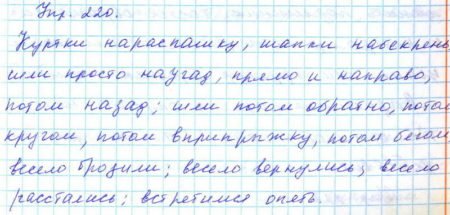 Упр. 220.
Куртки нараспашку, шапки набекрень
шли просто наугад, прямо и направо,
потом назад; шли потом обратно, потом
кругом, потом вприпрыжку, потом бегом
весело бродили; весело вернулись; весело
расстались; встретимся опять.